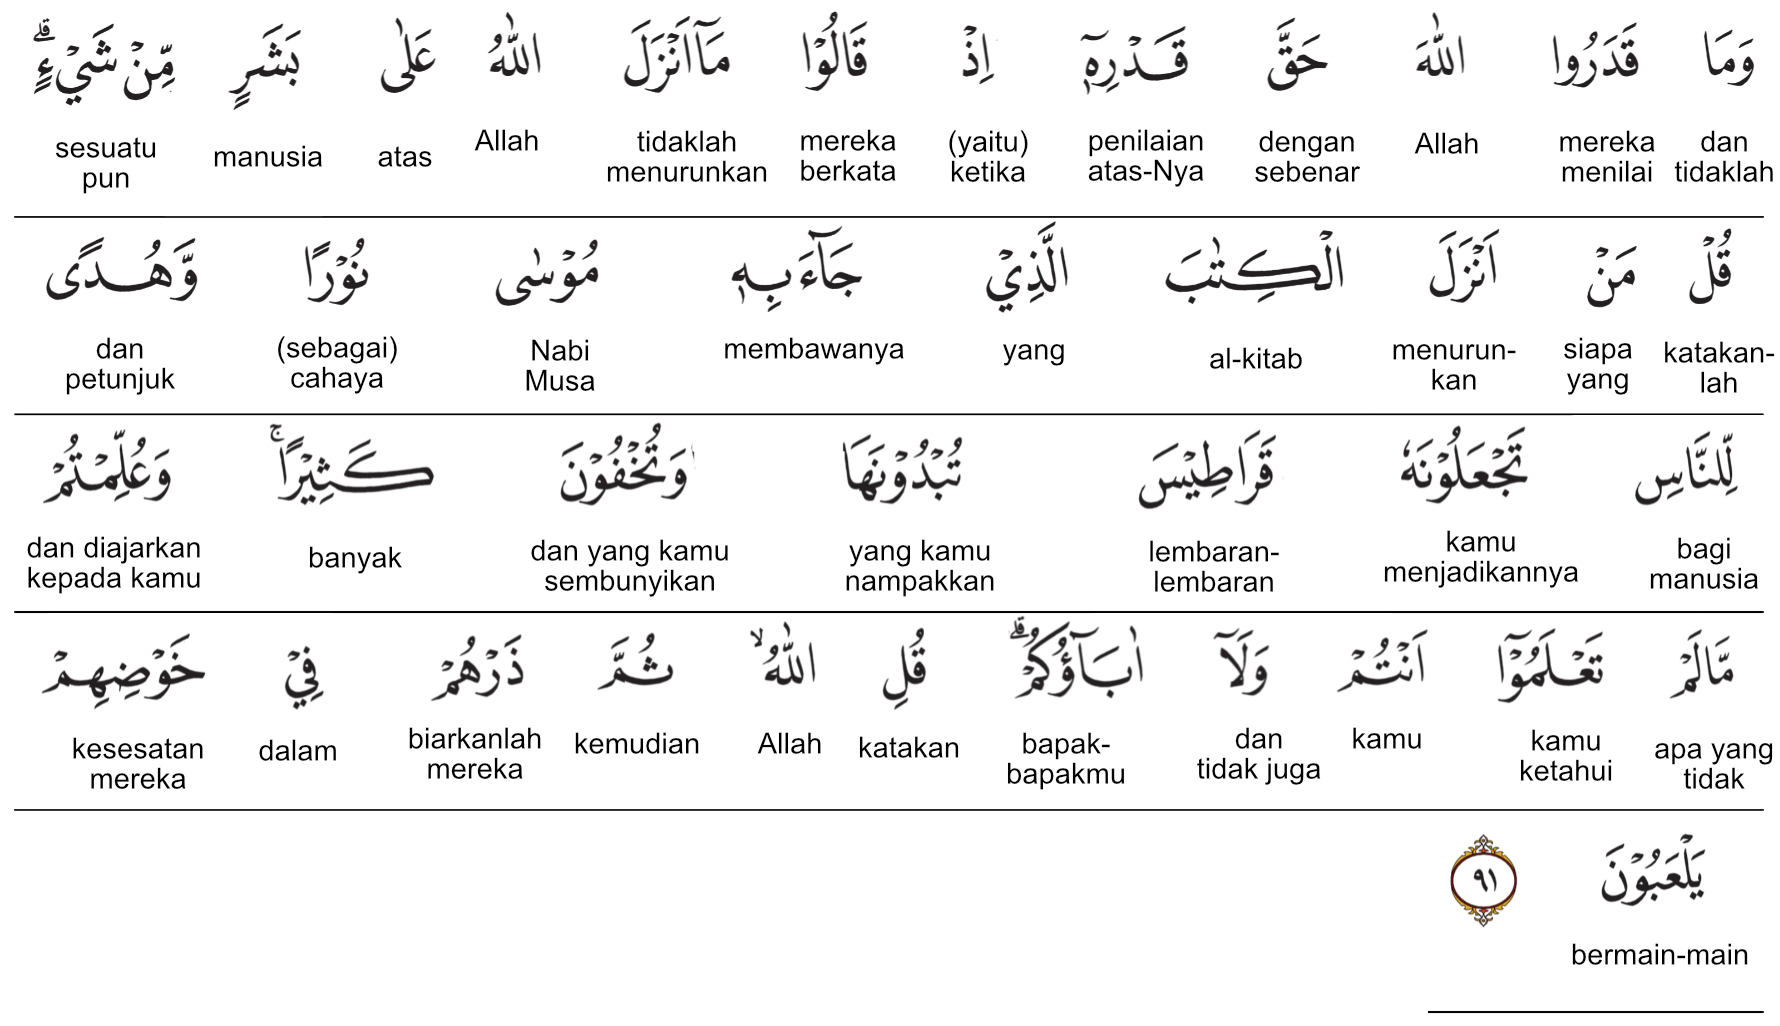 وَمَا قَدَرُوا اللّٰهَ حَقَّ قَدْرِهٖٓ اِذْ قَالُوْا مَآاَنْزَلَ اللّٰهُ عَلٰى بَشَرٍ مِّنْ شَيْءٍۗ
dan tidaklah mereka menilai Allah dengan sebenar penilaian atas-Nya (yaitu) ketika mereka berkata tidaklah menurunkan Allah atas manusia sesuatu pun
قُلْ مَنْ اَنْزَلَ الْكِتٰبَ الَّذِيْ جَاۤءَبِهٖ مُوْسٰى نُوْرًا وَّهُدًى
katakan-lah siapa yang menurun-kan al-kitab yang membawanya Nabi Musa (sebagai) cahaya dan petunjuk
لِّلنَّاسِ تَجْعَلُوْنَهٗ قَرَاطِيْسَ تُبْدُوْنَهَا وَتُخْفُوْنَ كَثِيْرًاۚ وَعُلِّمْتُمْ
bagi manusia kamu menjadikannya lembaran-lembaran yang kamu nampakkan dan yang kamu sembunyikan banyak dan diajarkan kepada kamu
مَّالَمْ تَعْلَمُوْٓا اَنْتُمْ وَلَآ اٰبَاۤؤُكُمْۗ قُلِ اللّٰهُۙ ثُمَّ ذَرْهُمْ فِيْ خَوْضِهِمْ
apa yang tidak kamu ketahui kamu dan tidak juga bapak-bapakmu katakan Allah kemudian biarkanlah mereka dalam kesesatan mereka
يَلْعَبُوْنَ ٩١
bermain-main